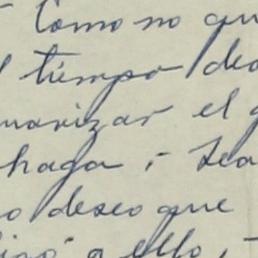 Como no qu
tiempo des
marizar el g
haga, - Lea
o deseo que
a ello, -